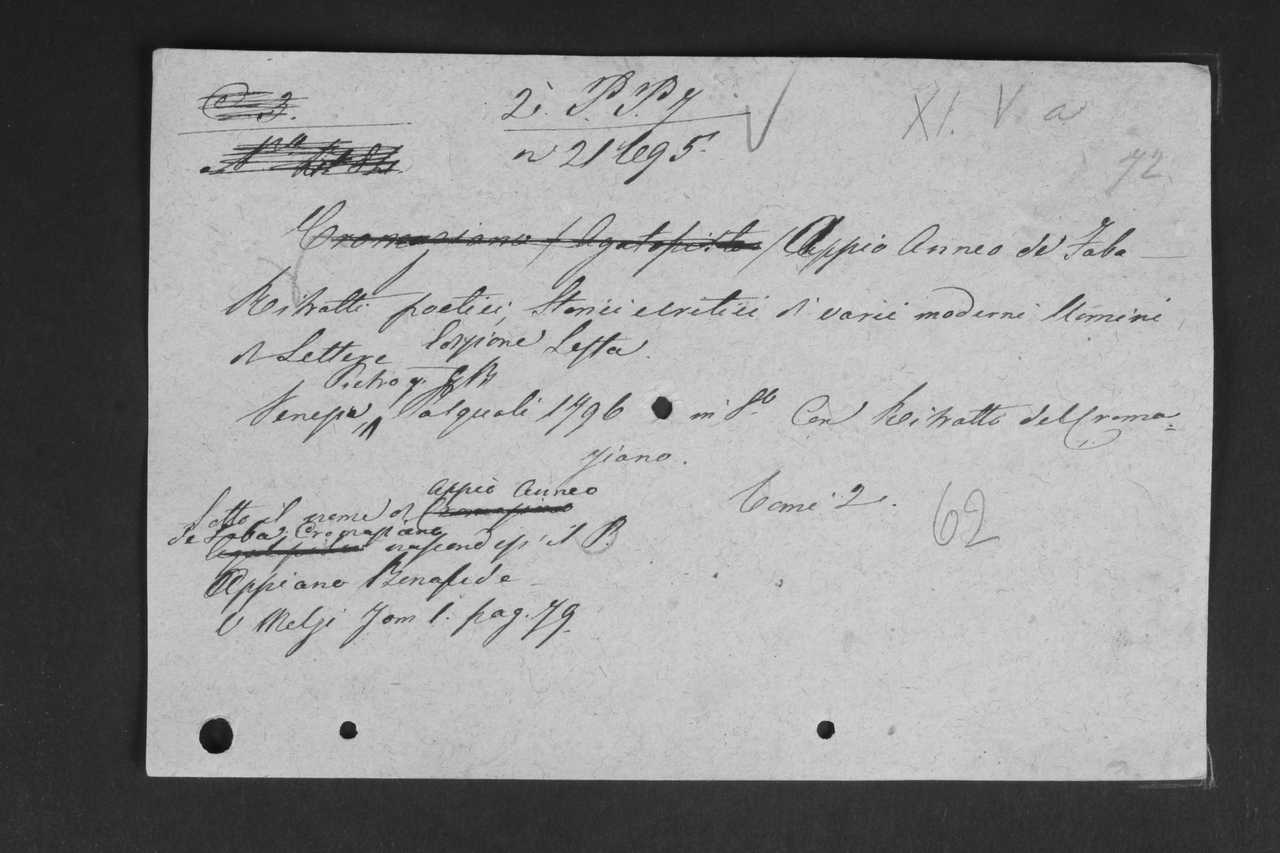 C. 3.
2ì. P. P. 7
XI. V. a
n 21695
72
Cromaziano / Agatopisto / Appio Anneo de Faba
Ritratti poetici, Storici e critici di varii moderni Uomini
di Lettere Edizione Sesta.
Pietro q. G B
Venezia Pasquali 1796 in 8.º Con Ritratto del Croma=
ziano.
Tomi 2.
62
Appio Anneo
Sotto il nome di Cromaziano
de Faba, Cromaziano
nascondesi il P.
Appiano Bonafede
V Melzi Tom 1. pag. 79.